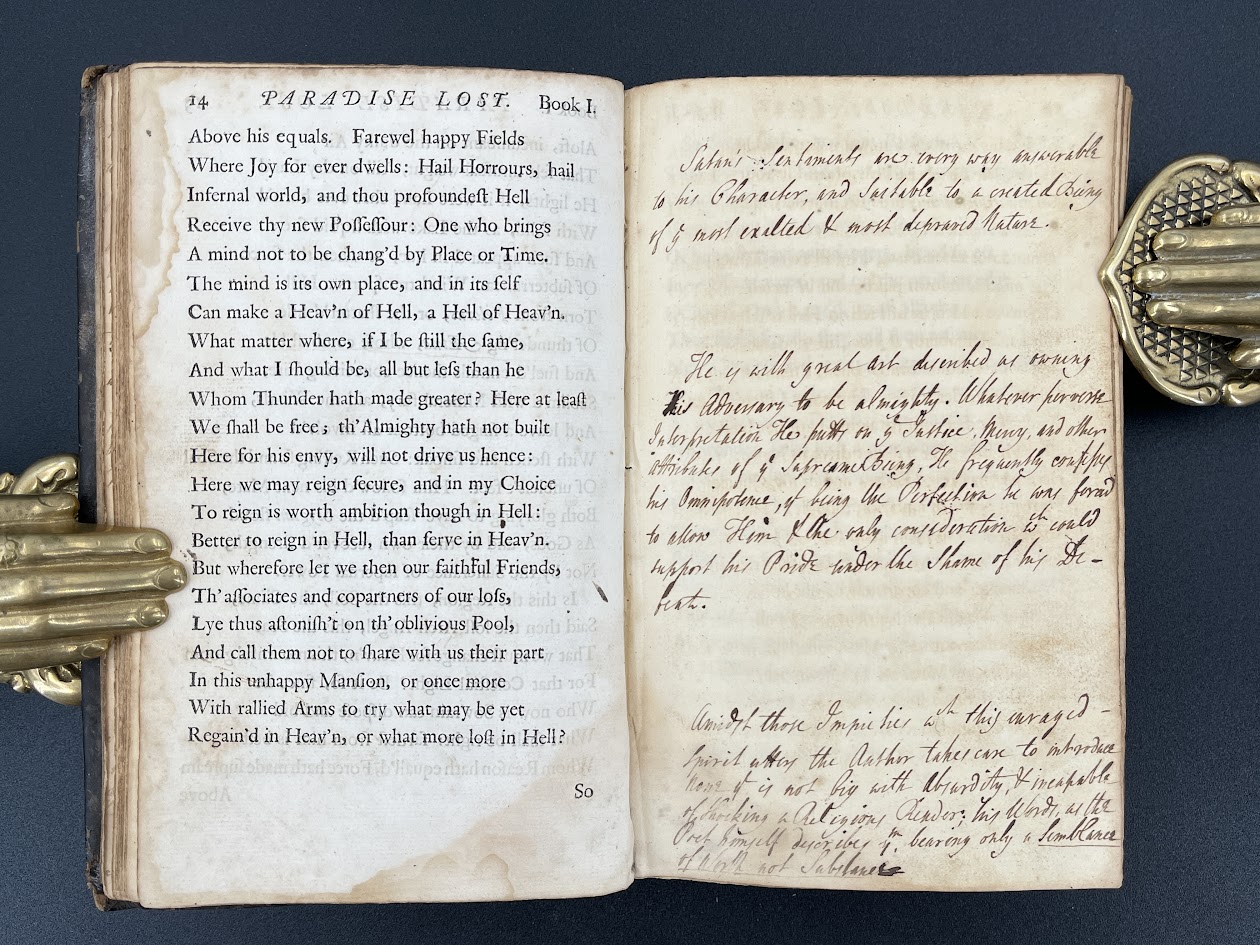 14 PARADISE LOST. Book I.
Above his equals. Farewel happy Fields
Where Joy for ever dwells: Hail Horrours, hail
Infernal world, and thou profoundeſt Hell
Receive thy new Poſſeſſour: One who brings
A mind not to be chang'd by Place or Time.
The mind is its own place, and in its ſelf
Can make a Heav'n of Hell, a Hell of Heav'n.
What matter where, if I be ſtill the ſame,
And what I ſhould be, all but leſs than he
Whom Thunder hath made greater? Here at leaſt
We ſhall be free; th'Almighty hath not built
Here for his envy, will not drive us hence:
Here we may reign ſecure, and in my Choice
To reign is worth ambition though in Hell:
Better to reign in Hell, than ſerve in Heav'n.
But wherefore let we then our faithful Friends,
Th'aſſociates and copartners of our loſs,
Lye thus aſtoniſh't on th'oblivious Pool,
And call them not to ſhare with us their part
In this unhappy Manſion, or once more
With rallied Arms to try what may be yet
Regain'd in Heav'n, or what more loſt in Hell?
So
Satan's Sentiments are every way answerable
to his Character, and Suitable to a created Being
of yͤ most exalted & most depraved Nature.
He is with great Art described as owning
His Adversary to be almighty. Whatever perverse
Interpretation He putts on yͤ Justice, Mercy, and other
attributes of yͤ Supreme Being, He frequently confesses
his Omnipotence, yͭ being the Perfection he was forced
to allow Him & the only consideration wᶜʰ could
support his Pride under the Shame of his De-
feat.
Amidst those Impieties wᶜʰ this enraged
Spirit utters the Author takes care to introduce
None yͭ is not big with Absurdity, & incapable
of shocking a Religious Reader; his Words, as the
Poet himself describes yᵐ, bearing only a Semblance
of Worth not Substance